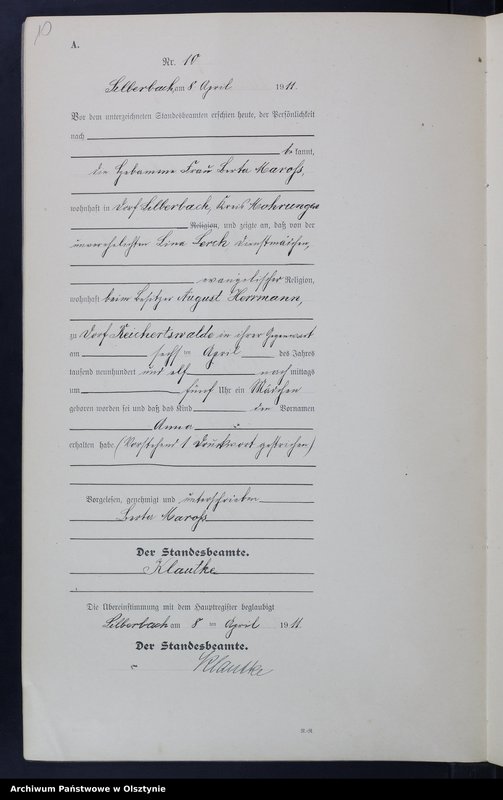 10
A.
Nr. 10
Silberbach, am 8 April 1911.
Vor dem unterzeichneten Standesbeamten erschien heute, der Persönlichkeit
nach
be kannt,
die Hebamme Frau Berta Maroß,
wohnhaft in Dorf Silberbach, Kreis Mohrungen
Religion, und zeigte an, daß von der
unverehelichten Lina Serck Dienstmädchen,
evangelischer Religion,
wohnhaft beim Besitzer August Herrmann,
zu Dorf Reichertswalde in ihrer Gegenwart
am sechsten April des Jahres
tausend neunhundert und elf nach mittags
um fünf Uhr ein Mädchen
geboren worden sei und daß das Kind den Vornamen
Anna
erhalten habe. (Vorstehend 1 Druckwort gestrichen)
Vorgelesen, genehmigt und unterschrieben
Berta Maroß
Der Standesbeamte.
Klautke
Die Übereinstimmung mit dem Hauptregister beglaubigt
Silberbach am 8 ten April 1911.
Der Standesbeamte.
Klautke
Archiwum Państwowe w Olsztynie